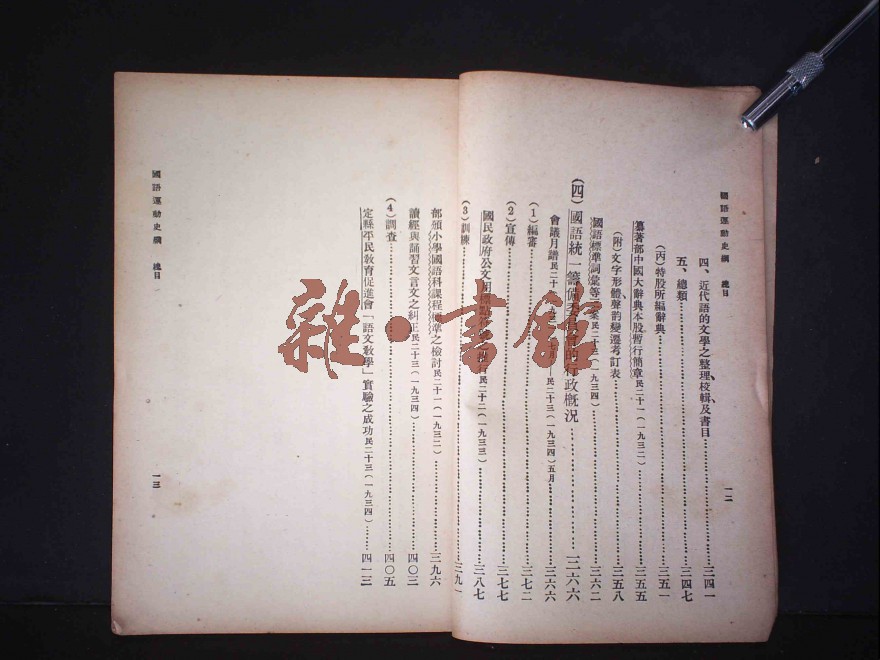 國語運動史綱 總目
一二
四、近代語的文學之整理、校輯、及書目……三四一
五、總類……三四七
(丙)特股所編辭典……三五一
纂著部中國大辭典本股暫行簡章民二十一(一九三二)……三五五
(附)文字形體、聲韵變遷考訂表……三五八
國語標準詞彙等 案民二十三(一九三四)……三六二
(四)國語統一籌備委員會的行政概況……三六六
會議月譜民二十 民二十三(一九三四)五月……三六六
(1)編審……三七二
(2)宣傳……三七七
國民政府公文用標點 行民二十二(一九三三)……三八七
(3)訓練……三九一
部頒小學國語科課程標準之檢討民二十一(一九三二)……三九六
讀經與誦習文言文之糾正民二十三(一九三四)……四〇三
(4)調查……四〇五
定縣平民教育促進會「語文教學」實驗之成功民二十三(一九三四)……四一三
國語運動史綱 總目
一三
雜·書館